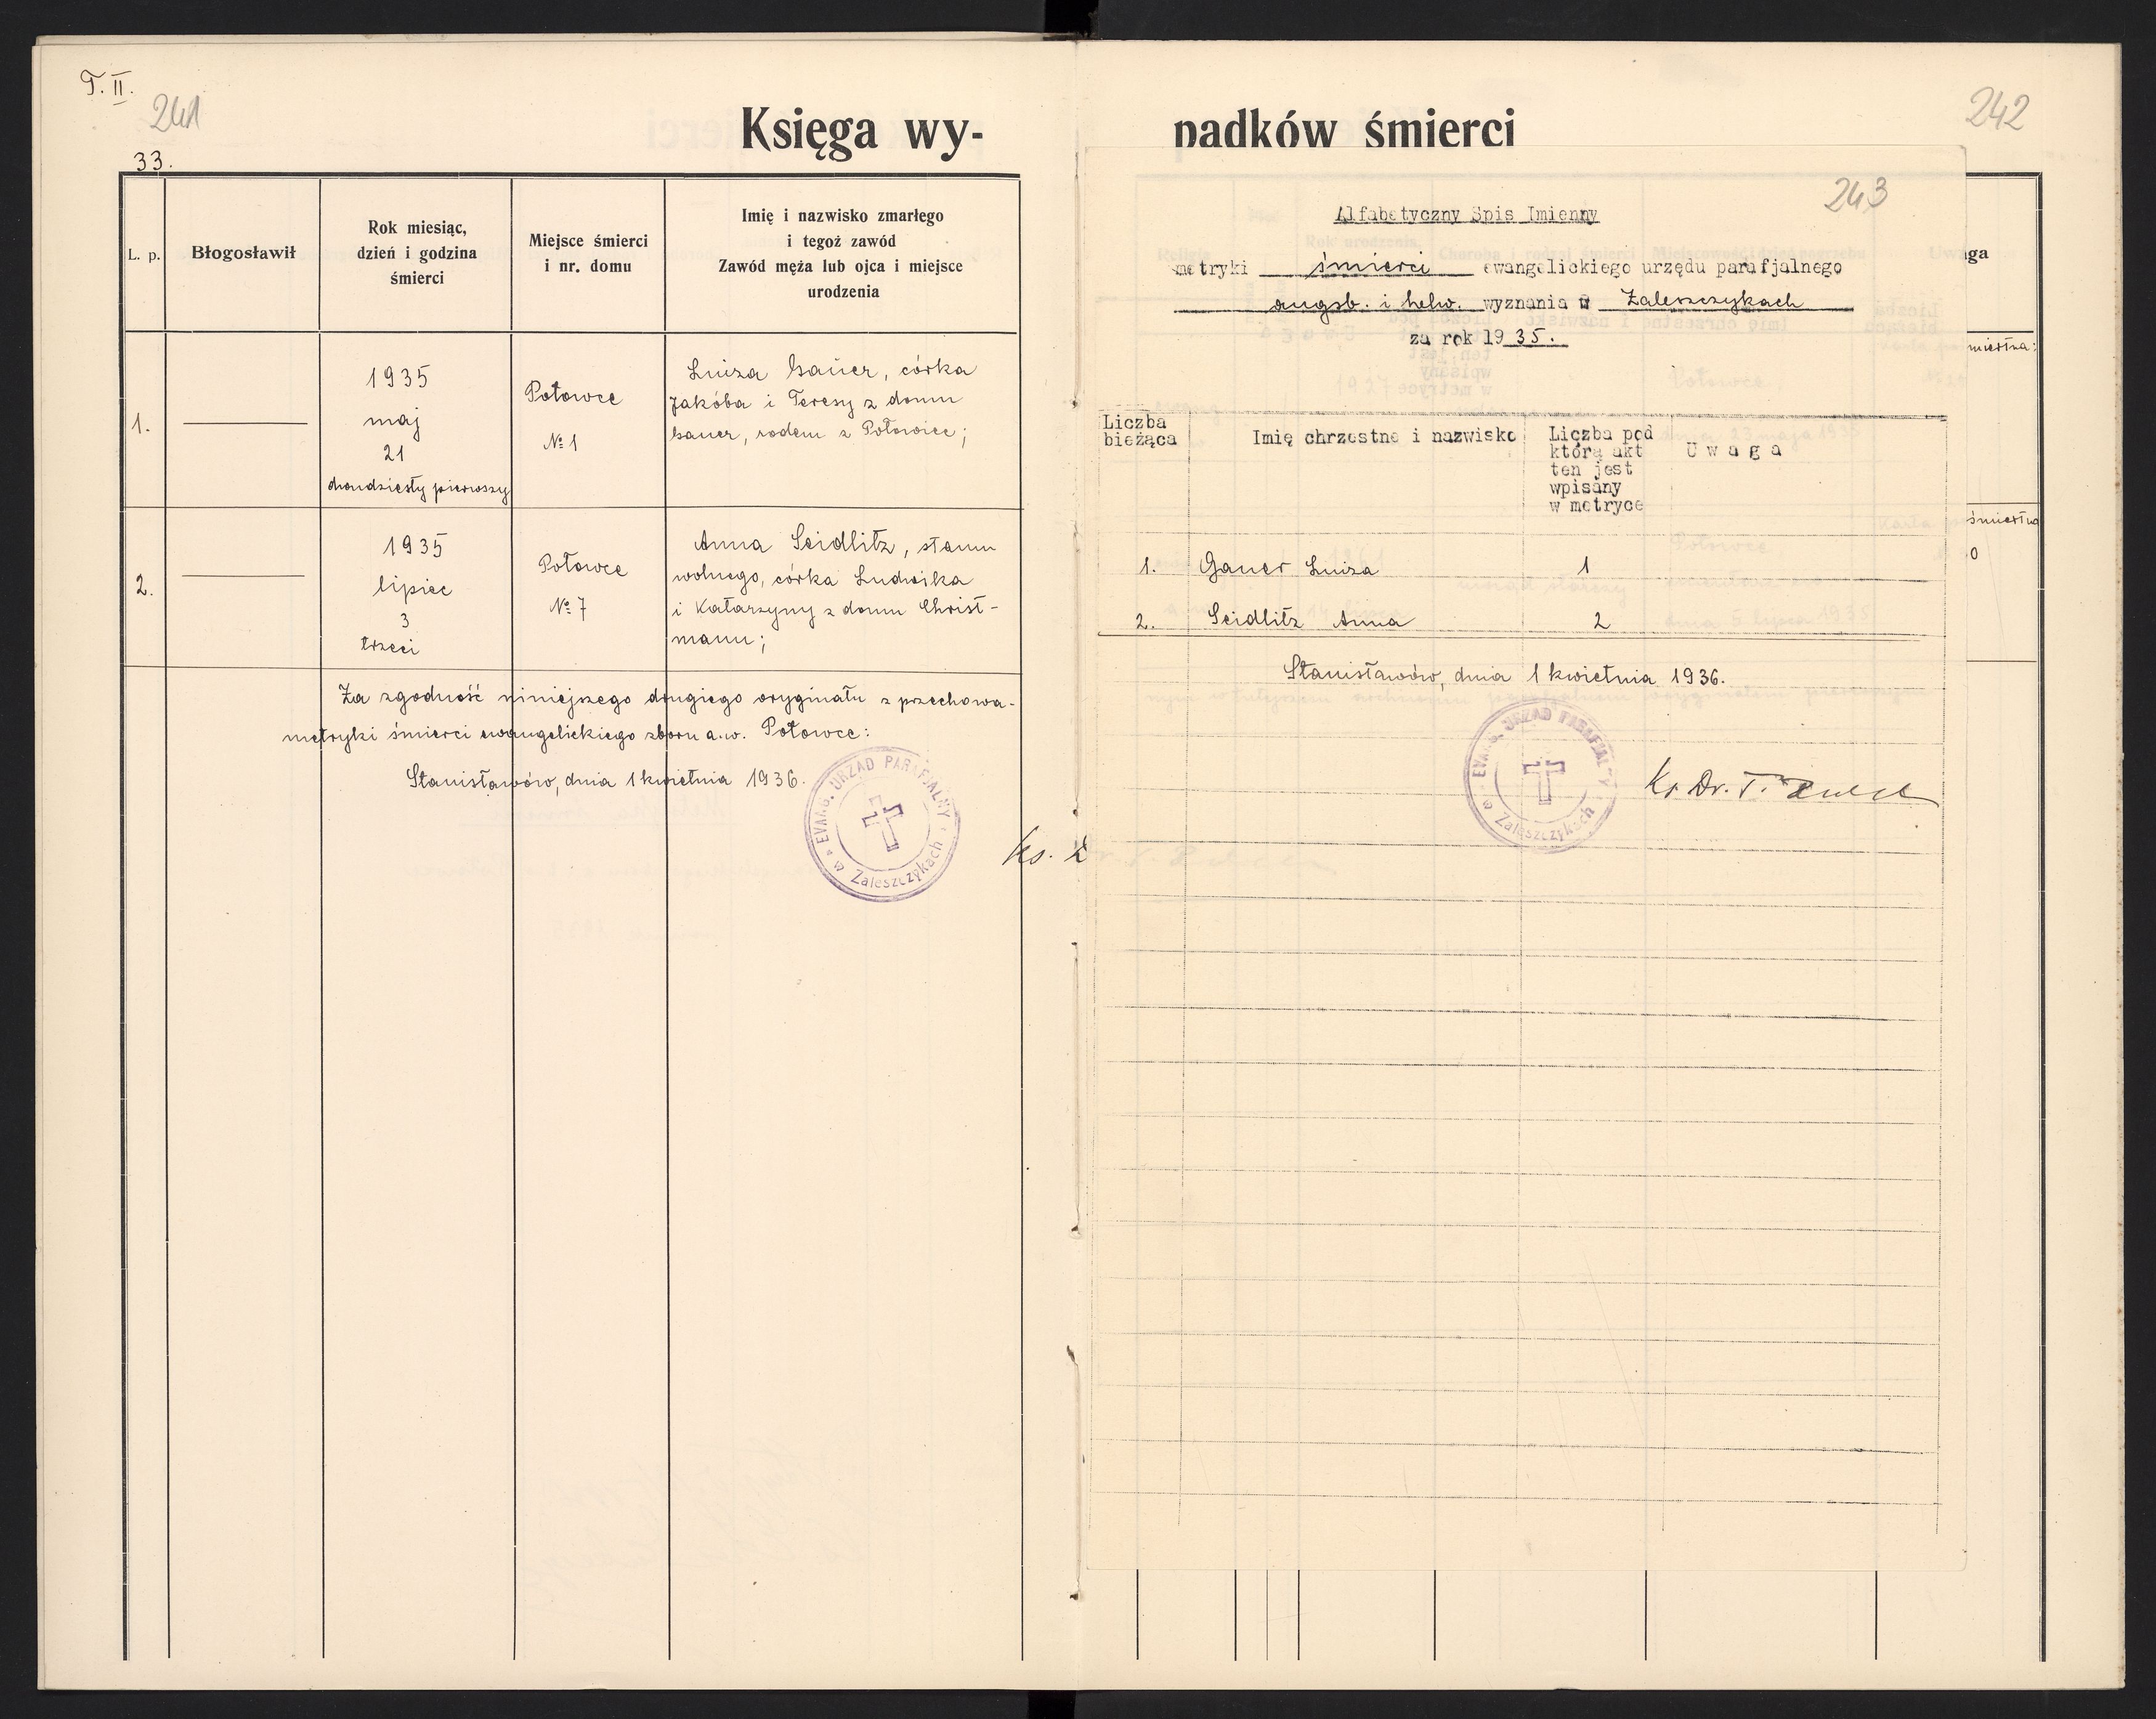 T. II.
241
33.
Księga wy-
L. p.
Błogosławił
Rok miesiąc,
dzień i godzina
śmierci
Miejsce śmierci
i nr. domu
Imię i nazwisko zmarłego
i tegoż zawód
Zawód męża lub ojca i miejsce
urodzenia
1.
1935
maj
21
dwudziesty pierwszy
Potowce
№ 1
Luiza Gauer, córka
Jakóba i Teresy z domu
Gauer, rodem z Potowiec;
2.
1935
lipiec
3
trzeci
Potowce
№ 7
Anna Seidlitz, stanu
wolnego, córka Ludwika
i Katarzyny z domu Christ-
mann;
Za zgodność niniejszego drugiego oryginału z przechowa-
metryki śmierci ewangelickiego zboru a.w. Potowce:
Stanisławów, dnia 1 kwietnia 1936.
EVANG. URZĄD PARAFIALNY
w Zaleszczykach
Ks.
padków śmierci
242
243
Alfabetyczny Spis Imienny
metryki śmierci ewangelickiego urzędu parafjalnego
augsb. i helw. wyznania w Zaleszczykach
za rok 1935.
Liczba
bieżąca
Imię chrzestne i nazwisko
Liczba pod
którą akt
ten jest
wpisany
w metryce
Uwaga
1. Gauer Luiza 1
2. Seidlitz Anna 2
Stanisławów, dnia 1 kwietnia 1936.
EVANG. URZĄD PARAFIALNY
w Zaleszczykach
Ks Dr. T.
ga
śmiertna
0